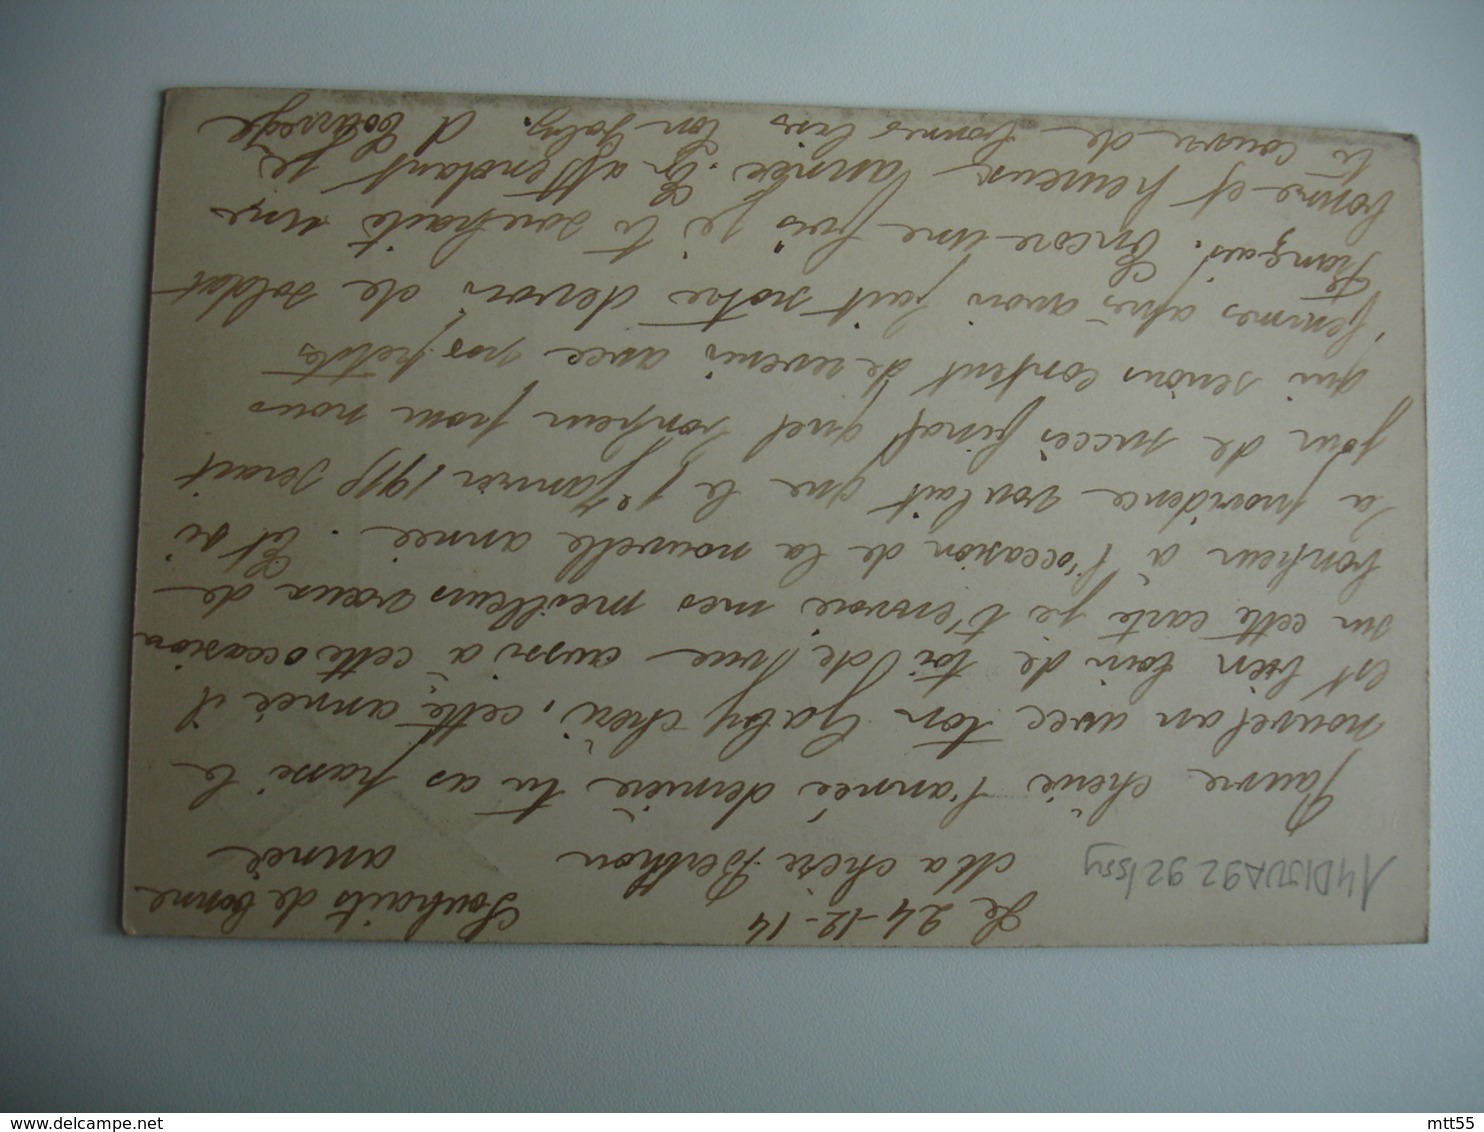 Le 24-12-14 Souhaits de bonne
année
Ma chère Berthon
14DIJUA92 92/ssy
Pauvre chérie l'année dernière tu as passé le
nouvel an avec ton Gaby chéri, cette année il
est bien loin de toi aussi à cette occasion
sur cette carte je t'envoie mes meilleurs vœux de
bonheur à l'occasion de la nouvelle année. Et si
la providence voulait que le 1er janvier 1915 serait
jour de succès final quel bonheur pour nous
qui serions content de revenir avec nos petites
femmes après avoir fait notre devoir de soldat
Français. Encore une fois je te souhaite une
bonne et heureux année. En attendant je
te couvre de bonnes bises ton Gaby.
delcampe.net
mtt55